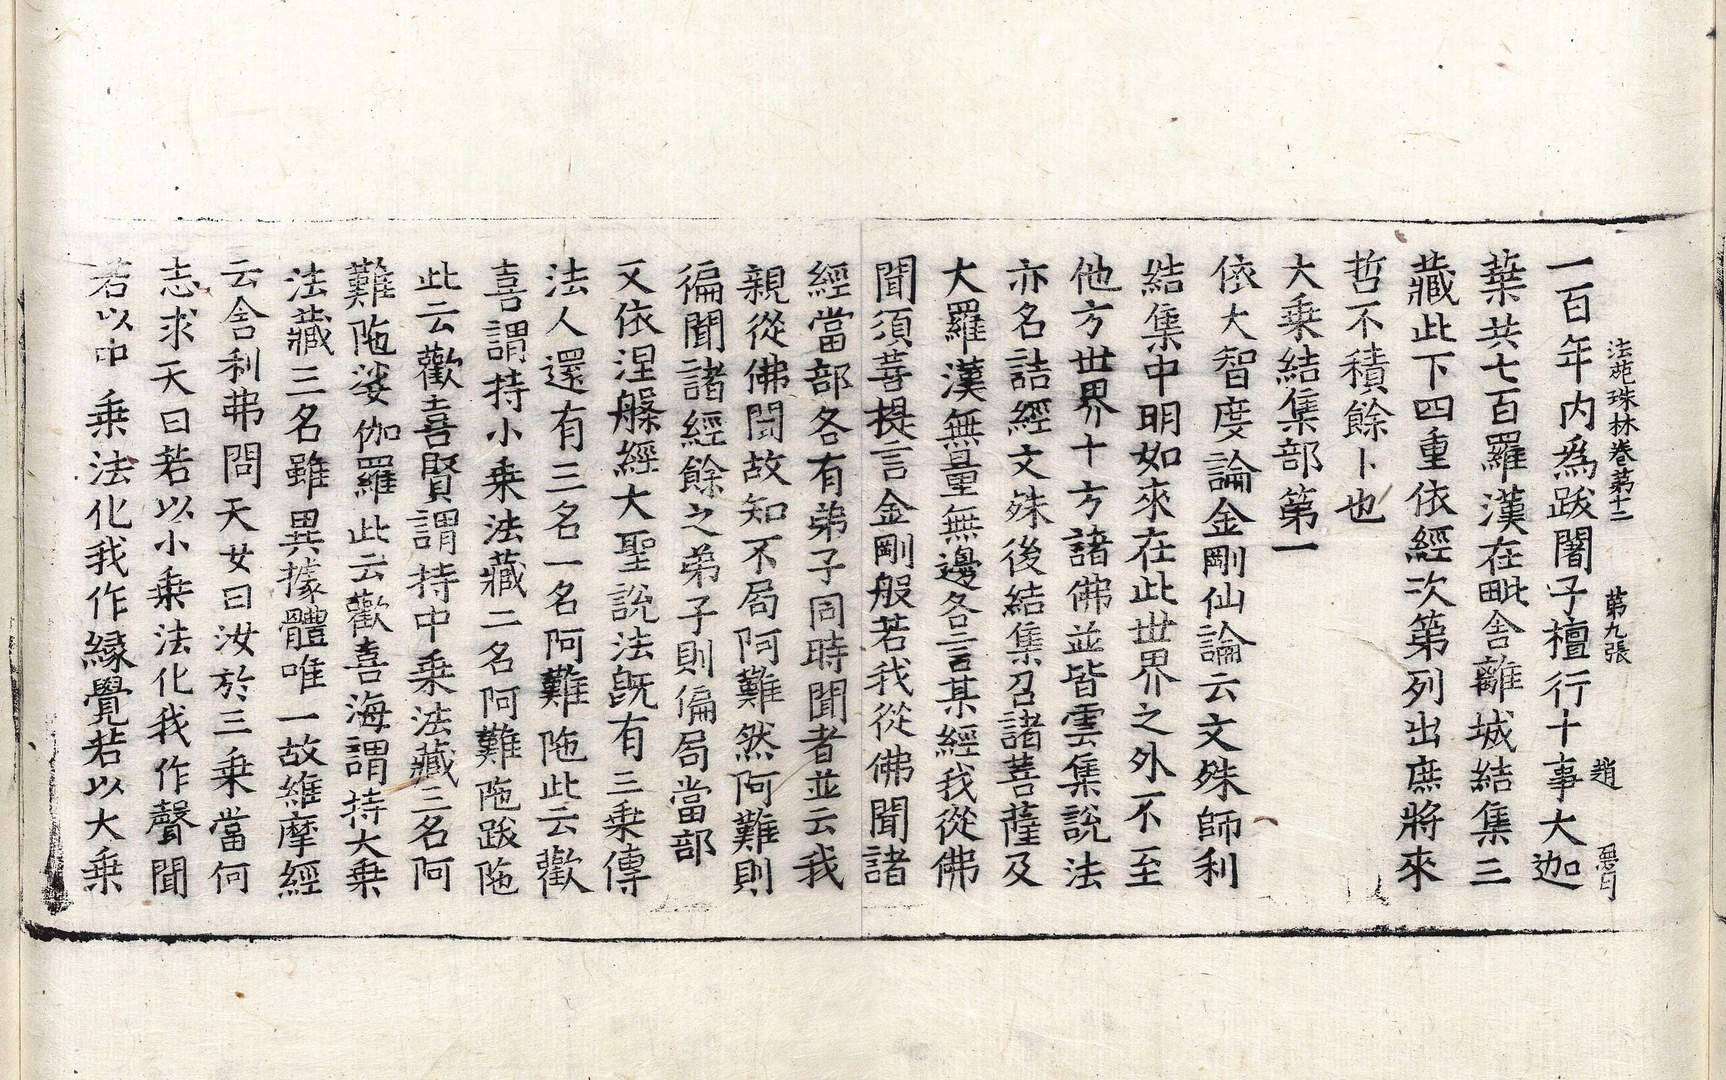 法苑珠林卷第十二 第九張 趙
一百年内爲跋闍子檀行十事大迦
葉共七百羅漢在毗舍離城結集三
藏此下四重依經次第列出庶將來
哲不積餘卜也
大乗結集部第一
依大智度論金剛仙論云文殊師利
結集中明如來在此世界之外不至
他方世界十方諸佛並皆雲集說法
亦名詰經文殊後結集召諸菩薩及
大羅漢無量無邊各言某經我從佛
聞須菩提言金剛般若我從佛聞諸
經當部各有弟子同時聞者並云我
親從佛聞故知不局阿難然阿難則
徧聞諸經餘之弟子則偏局當部
又依涅槃經大聖說法旣有三乗傳
法人還有三名一名阿難陁此云歡
喜謂持小乗法藏二名阿難陁跋陁
此云歡喜賢謂持中乗法藏三名阿
難陁娑伽羅此云歡喜海謂持大乗
法藏三名雖異據體唯一故維摩經
云舍利弗問天女曰汝於三乗當何
志求天曰若以小乗法化我作聲聞
若以中乗法化我作緣覺若以大乗